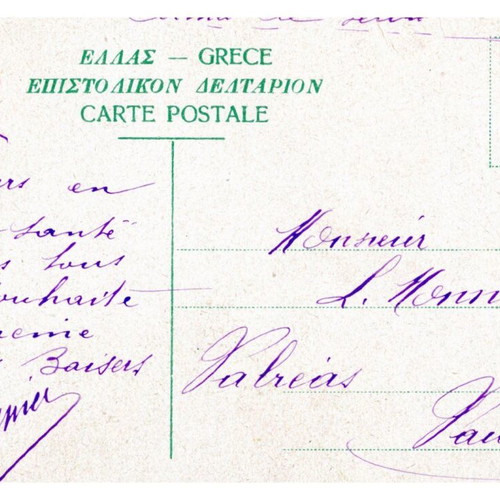 ΕΛΛΑΣ — GRECE
ΕΠΙΣΤΟΛΙΚΟΝ ΔΕΛΤΑΡΙΟΝ
CARTE POSTALE
en
santé
tous
souhaite
Baisers
Monsieur
L. Monn
Valréas
Vau